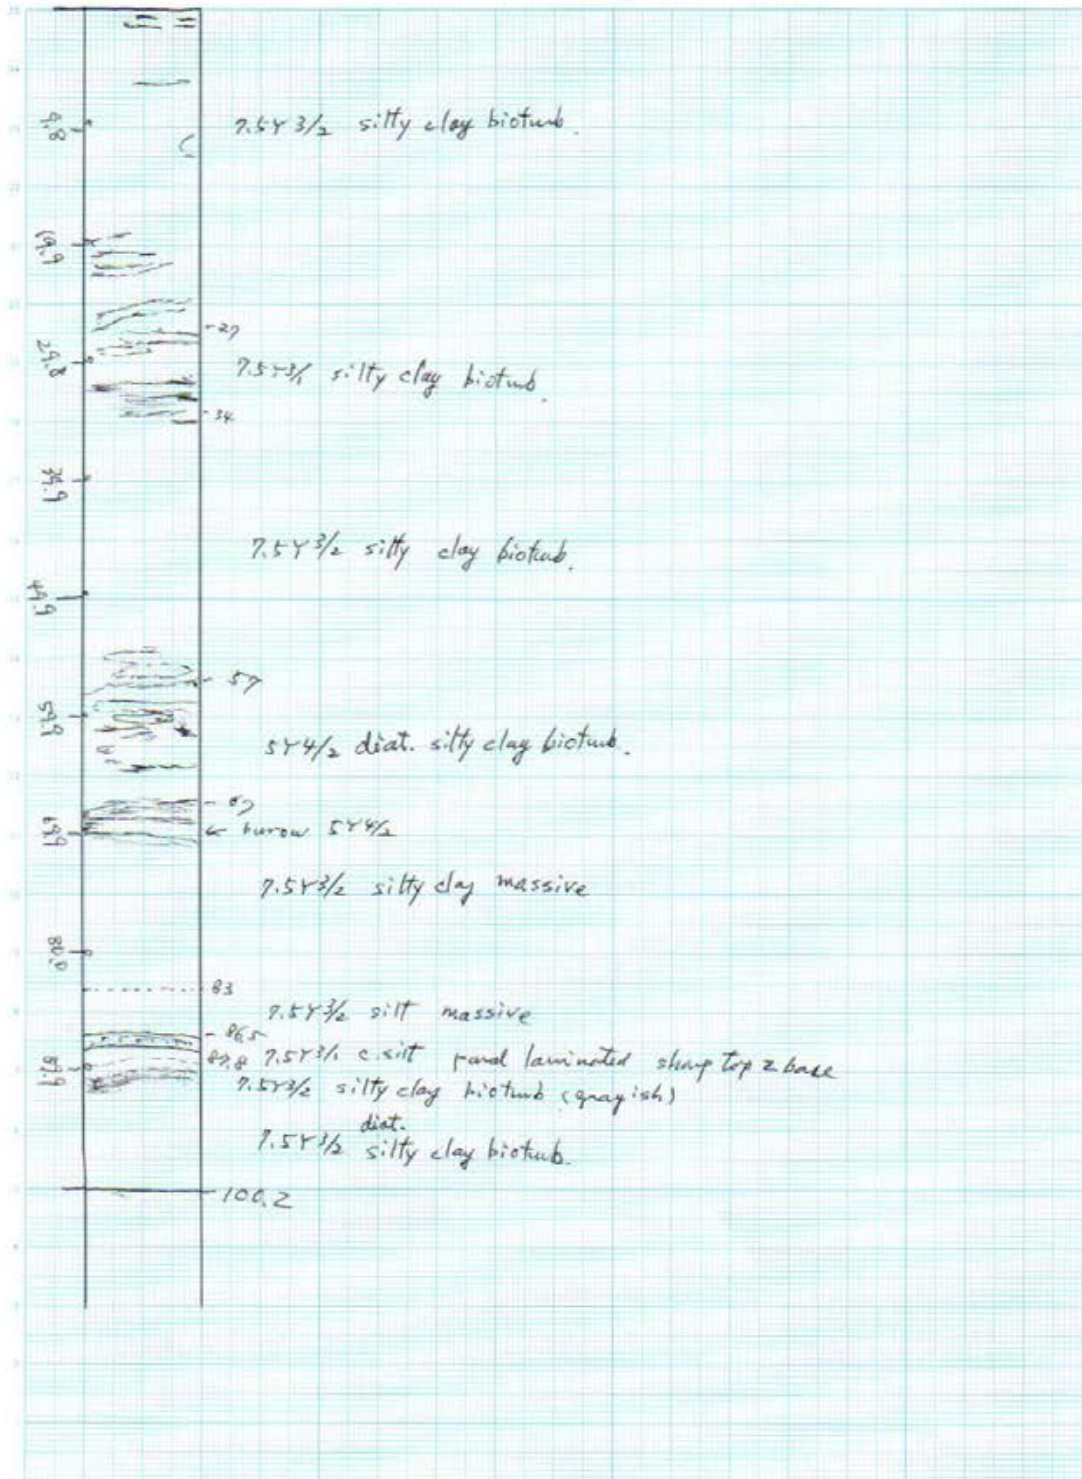 9.8
7.5Y 3/2 silty clay bioturb.
19.9
-27
29.8
7.5Y 3/1 silty clay bioturb.
-34
39.9
7.5Y 3/2 silty clay bioturb.
49.9
- 57
59.9
5Y 4/2 diat. silty clay bioturb.
- 67
69.9
← burow 5Y 4/2
7.5Y 3/2 silty clay massive
80.0
- 83
7.5Y 3/2 silt massive
- 86.5
87.8 7.5Y 3/1 c.silt laminated sharp top & base
7.5Y 3/2 silty clay bioturb (grayish)
diat.
7.5Y 3/2 silty clay bioturb.
-100.2